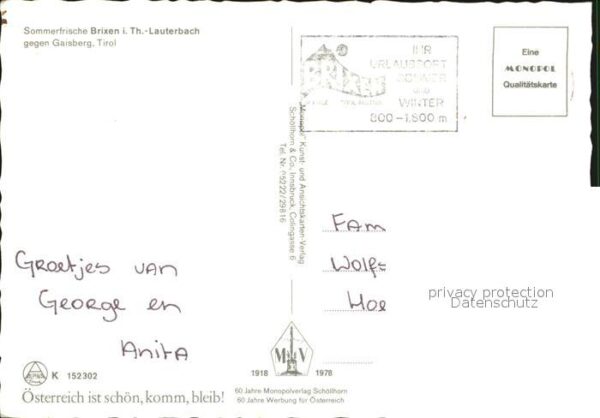 Sommerfrische Brixen i. Th.-Lauterbach
gegen Gaisberg, Tirol
IHR
URLAUBSORT
SOMMER
und
WINTER
800-1.800 m
Eine
MONOPOL
Qualitätskarte
"Monopol" Kunst- und Ansichtskarten-Verlag
Schöllhorn & Co., Innsbruck, Colingasse 6
Tel. Nr. 05222/29816
Groetjes van
George en
Anita
Fam
Wolfs
Hoe
privacy protection
Datenschutz
K 152302
Österreich ist schön, komm, bleib!
1918 M V 1978
60 Jahre Monopolverlag Schöllhorn
60 Jahre Werbung für Österreich